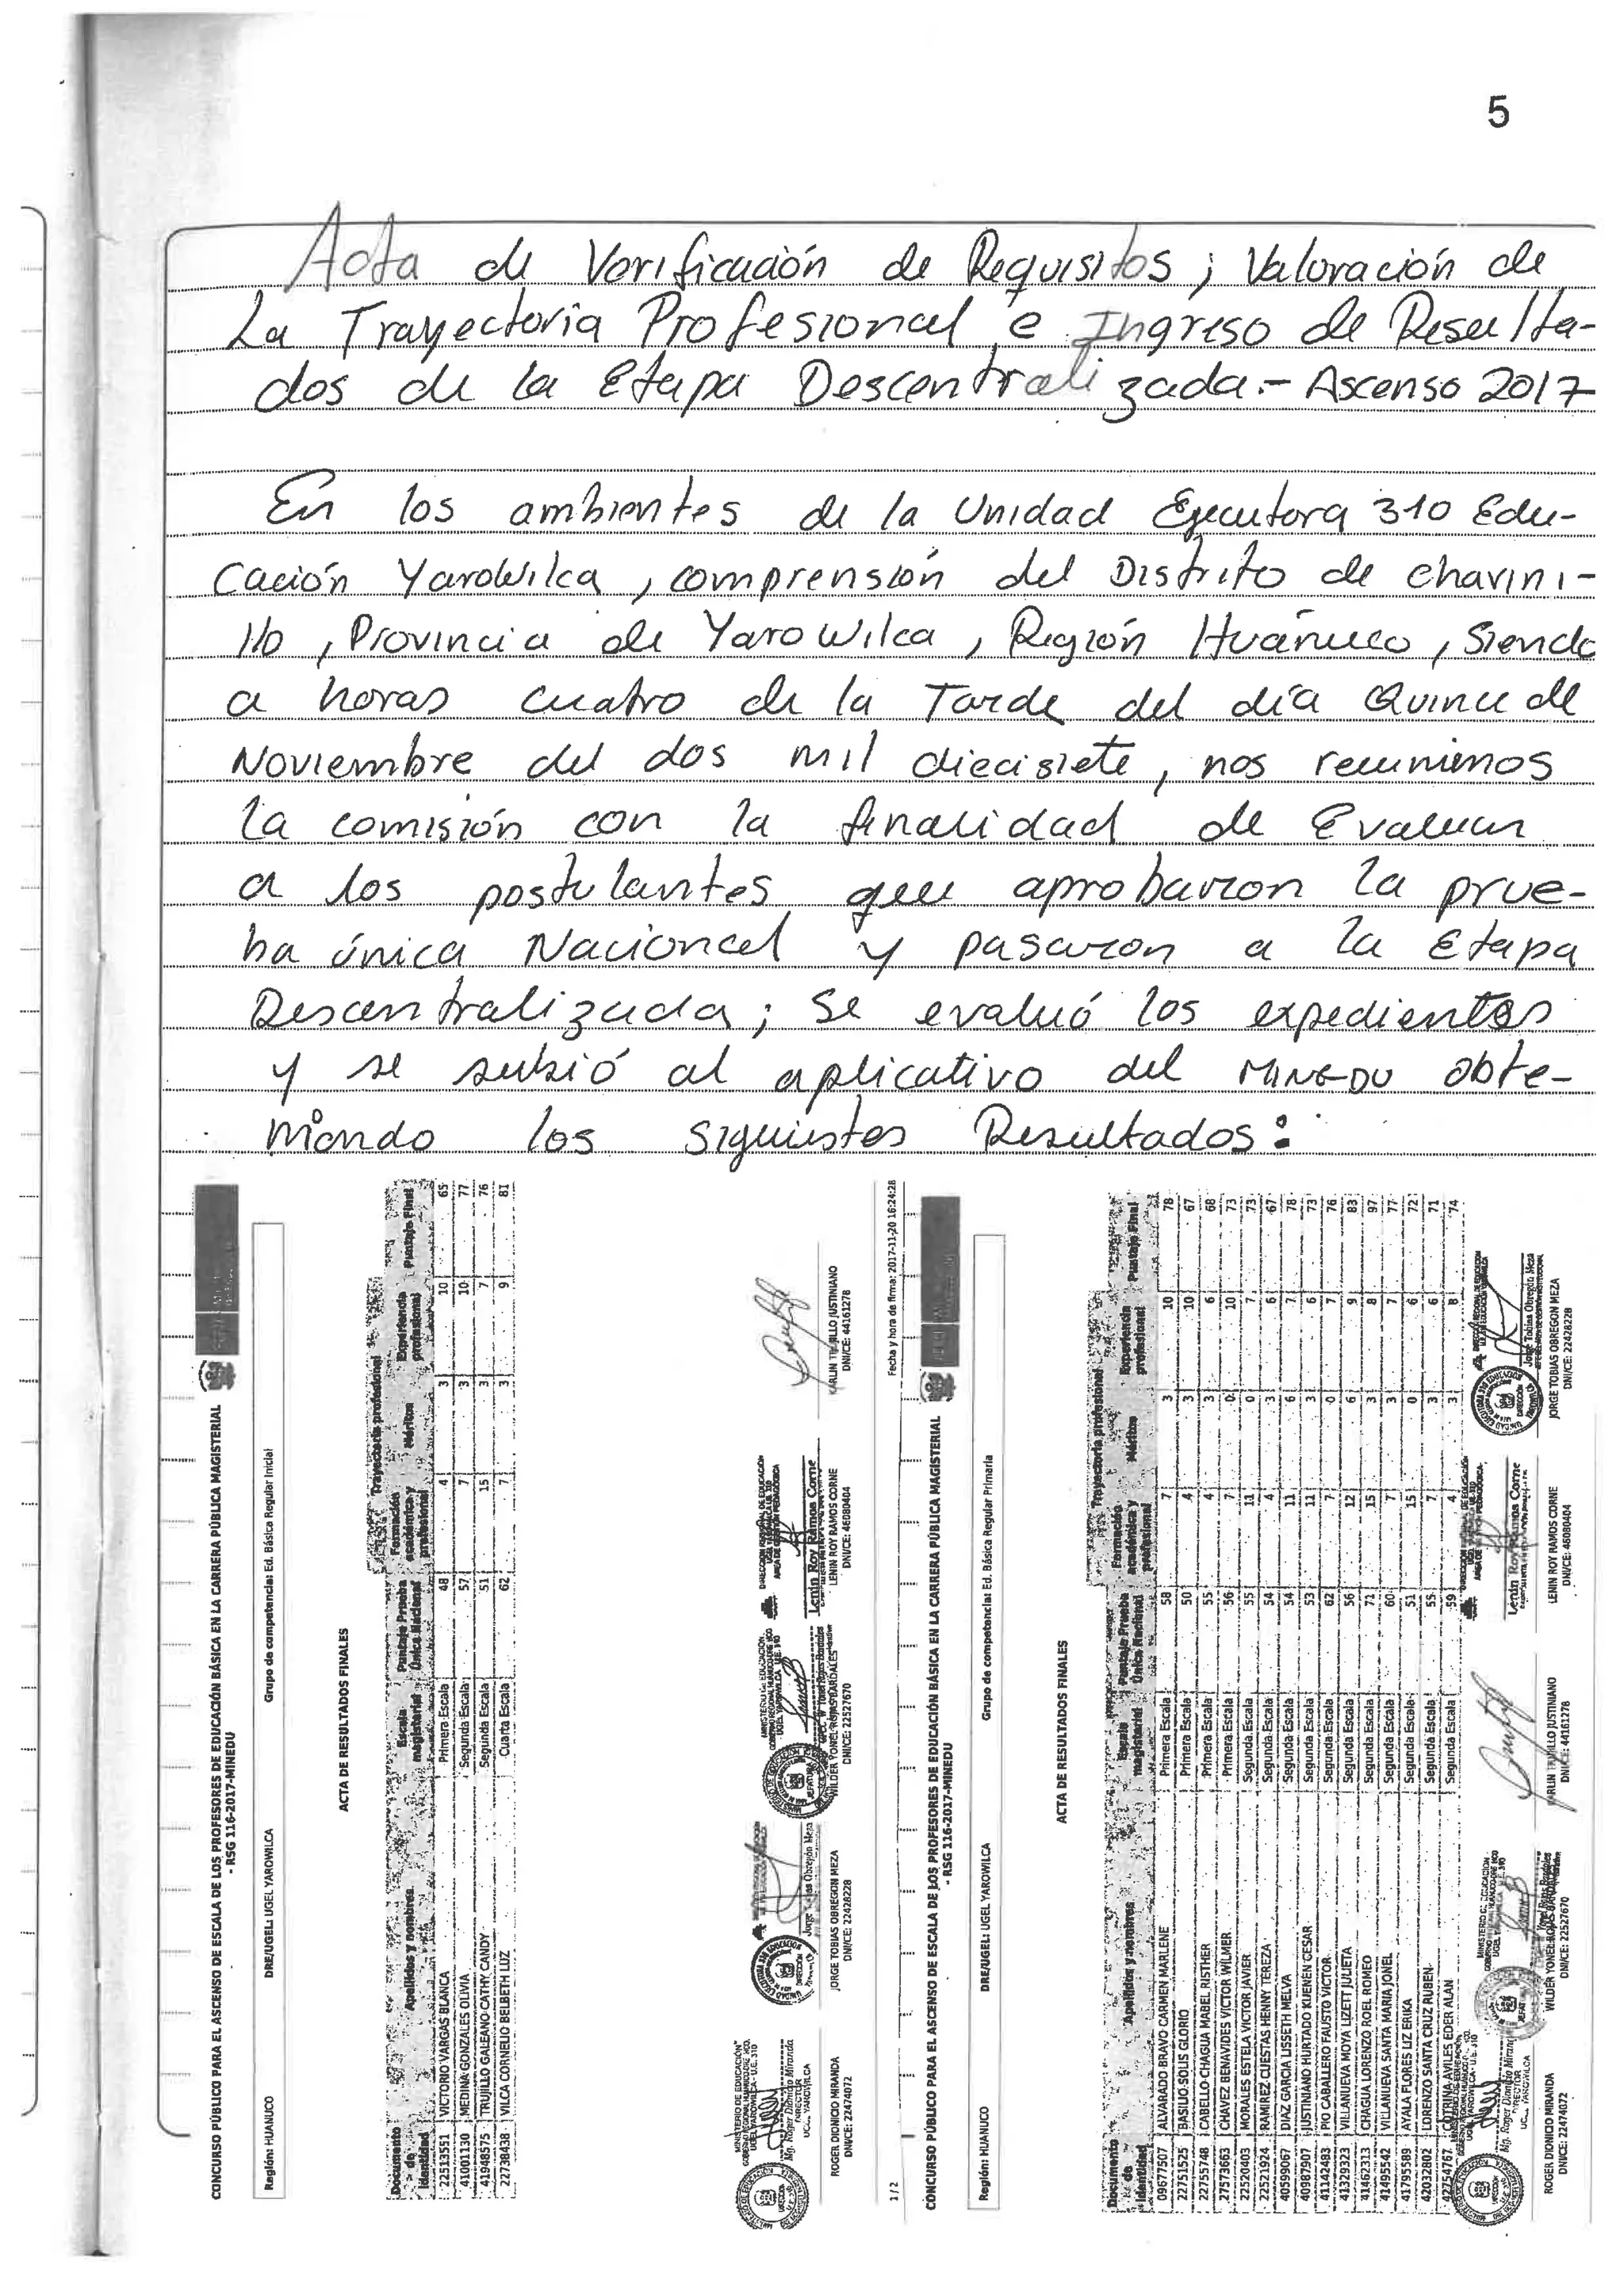 5
Acta de Verificación de Requisitos; Valoración de
La Trayectoria Profesional e Ingreso de Resulta-
dos de la Etapa Descentralizada.- Ascenso 2017
En los ambientes de la Unidad Ejecutora 310 Edu-
cación Yarowilca, comprensión del Distrito de Chavini-
llo, Provincia de Yarowilca, Región Huánuco, Siendo
a horas cuatro de la Tarde del día Quince de
Noviembre del dos mil diecisiete, nos reunimos
la comisión con la finalidad de Evaluar
a los postulantes que aprobaron la prue-
ba única Nacional y pasaron a la Etapa
Descentralizada; Se evaluó los expedientes
y se subió al aplicativo del MINEDU obte-
niendo los siguientes Resultados:
CONCURSO PÚBLICO PARA EL ASCENSO DE ESCALA DE LOS PROFESORES DE EDUCACIÓN BÁSICA EN LA CARRERA PÚBLICA MAGISTERIAL
- RSG 116-2017-MINEDU
Región: HUANUCO DRE/UGEL: UGEL YAROWILCA Grupo de competencia: Ed. Básica Regular Inicial
ACTA DE RESULTADOS FINALES
Trayectoria profesional
Documento de identidad Apellidos y nombres Escala magisterial Puntaje Prueba Única Nacional Formación académica y profesional Méritos Experiencia profesional Puntaje Final
22513551 VICTORIO VARGAS BLANCA Primera Escala 48 4 3 10 65
41001130 MEDINA GONZALES OLIVIA Segunda Escala 57 7 3 10 77
41948575 TRUJILLO GALEANO CATHY CANDY Segunda Escala 51 15 3 7 76
22738438 VILCA CORNELIO BELBETH LUZ Cuarta Escala 62 7 3 9 81
ROGER DIONICIO MIRANDA
DNI/CE: 22474072
JORGE TOBIAS OBREGON MEZA
DNI/CE: 22428228
WILDER YONEL ROJAS BARDALES
DNI/CE: 22527670
Lenin Roy Ramos Corne
LENIN ROY RAMOS CORNE
DNI/CE: 46080404
KARLIN TRUJILLO JUSTINIANO
DNI/CE: 44161278
1 / 2
Fecha y hora de firma: 2017-11-20 16:24:28
CONCURSO PÚBLICO PARA EL ASCENSO DE ESCALA DE LOS PROFESORES DE EDUCACIÓN BÁSICA EN LA CARRERA PÚBLICA MAGISTERIAL
- RSG 116-2017-MINEDU
Región: HUANUCO DRE/UGEL: UGEL YAROWILCA Grupo de competencia: Ed. Básica Regular Primaria
ACTA DE RESULTADOS FINALES
Trayectoria profesional
Documento de identidad Apellidos y nombres Escala magisterial Puntaje Prueba Única Nacional Formación académica y profesional Méritos Experiencia profesional Puntaje Final
09677507 ALVARADO BRAVO CARMEN MARLENE Primera Escala 58 7 3 10 78
22751525 BASILIO SOLIS GLORIO Primera Escala 50 4 3 10 67
22755748 CABELLO CHAGUA MABEL RISTHER Primera Escala 55 4 3 6 68
27573663 CHAVEZ BENAVIDES VICTOR WILMER Primera Escala 56 7 0 10 73
22520403 MORALES ESTELA VICTOR JAVIER Segunda Escala 55 11 0 7 73
22521924 RAMIREZ CUESTAS HENNY TEREZA Segunda Escala 54 4 3 6 67
40599067 DIAZ GARCIA LISSETH MELVA Segunda Escala 54 11 6 7 78
40987907 JUSTINIANO HURTADO KUENEN CESAR Segunda Escala 53 11 3 6 73
41142483 PIO CABALLERO FAUSTO VICTOR Segunda Escala 62 7 0 7 76
41329323 VILLANUEVA MOYA LIZETT JULIETA Segunda Escala 56 12 6 9 83
41462313 CHAGUA LORENZO RODEL ROMEO Segunda Escala 71 15 3 8 97
41495542 VILLANUEVA SANTA MARIA JONEL Segunda Escala 60 7 3 7 77
41795589 AYALA FLORES LIZ ERIKA Segunda Escala 51 15 0 6 72
42032802 LORENZO SANTA CRUZ RUBEN Segunda Escala 55 7 3 6 71
42754767 COTRINA AVILES EDER ALAN Segunda Escala 59 4 3 8 74
ROGER DIONICIO MIRANDA
DNI/CE: 22474072
WILDER YONEL ROJAS BARDALES
DNI/CE: 22527670
KARLIN TRUJILLO JUSTINIANO
DNI/CE: 44161278
LENIN ROY RAMOS CORNE
DNI/CE: 46080404
Jorge Tobias Obregón Meza
JORGE TOBIAS OBREGON MEZA
DNI/CE: 22428228